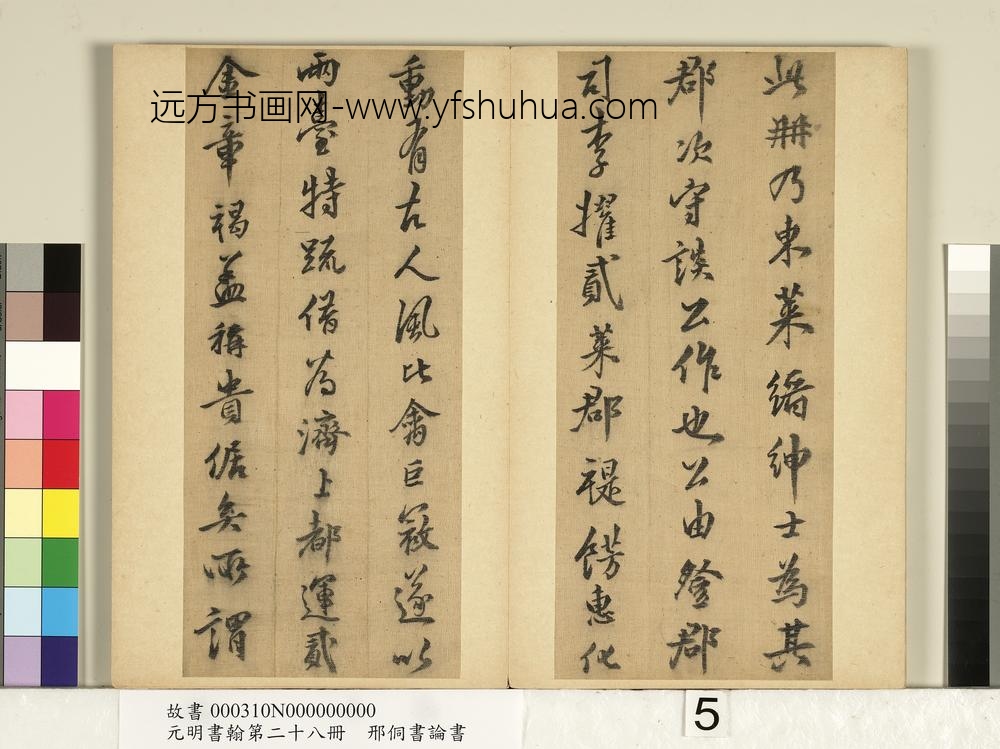 此冊乃東萊縉紳士為其
郡次守談公作也公由登郡
司李擢貳萊郡禔餝惠化
動有古人風比翕巨篏遂以
兩臺特疏借為濟上都運貳
金章褐蓋稱貴倨矣而謂
远方书画网-www.yfshuhua.com
故書 000310N000000000
元明書翰第二十八冊 邢侗書論書
5